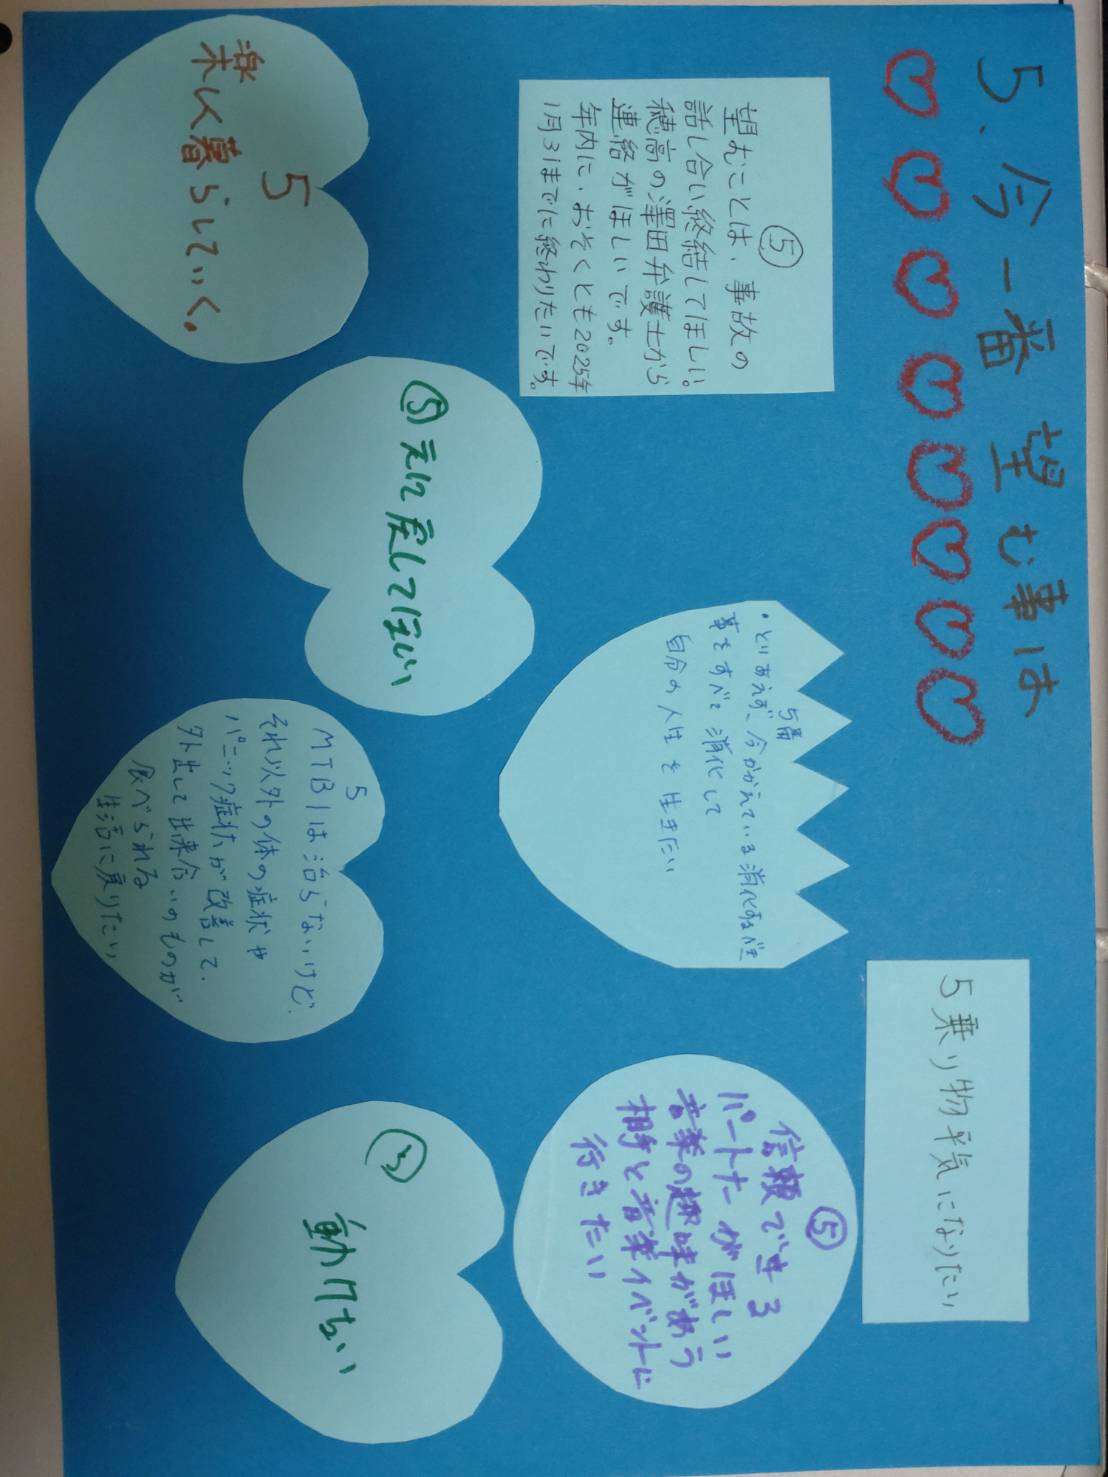 5. 今一番望む事は
⑤
望むことは、事故の
話し合い終結してほしい。
穂高の澤田弁護士から
連絡がほしいです。
年内に、おそくとも2025年
1月31までに終わりたいです。
5
楽しく暮らしていく。
⑤元に戻してほしい
5番
・とりあえず、今かかえている消化するべき
事をすべて消化して
自分の人生を生きたい
5
MTBIは治らないけど、
それ以外の体の症状や
パニック症状が改善して、
外出して出来合いのものが
食べられる
生活に戻りたい
5乗り物平気になりたい
⑤
信頼できる
パートナーがほしい
音楽の趣味があう
相手と音楽イベントに
行きたい
動けない